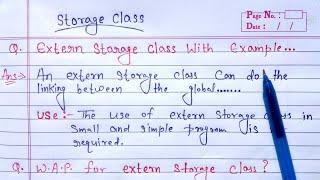 Storage Class
Page No.:
Date: / /
Q. Extern Storage Class With Example...
Ans:- An extern storage class can do the
linking between the global.......
Use:- The use of extern storage class in
small and simple program is
required.
Q. W.A.P. for extern storage class?